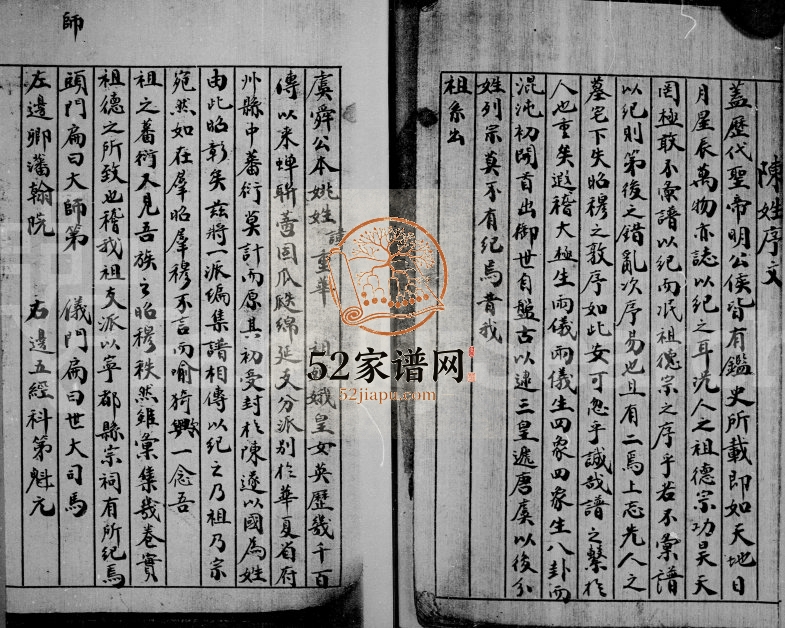 陳姓序文
蓋歷代聖帝明公侯皆有鑑史所載即如天地日
月星辰萬物亦誌以紀之耳況人之祖德宗功昊天
罔極敢不彙譜以紀而泯祖德宗之序乎若不彙譜
以紀則第後之錯亂次序易也且有二焉上忘先人之
墓宅下失昭穆之敦序如此安可忽乎誠哉譜之繫於
人也重矣遐稽大極生両儀両儀生四象四象生八卦而
混沌初開首出御世自盤古以逮三皇遞唐虞以後分
姓列宗莫不有紀焉昔我
祖系出
虞舜公本姚姓諱重華 祖 娥皇女英歷幾千百
傳以來蟬聯蒂固瓜瓞綿延支分派別於華夏省府
州縣中蕃衍莫計而原其初受封於陳遂以國為姓
由此昭彰矣茲將一派編集譜相傳以紀之乃祖乃宗
宛然如在羣昭羣穆不言而喻猗歟一念吾
祖之蕃衍又見吾族之昭穆秩然雖彙集幾卷實
祖德之所致也稽我祖支派以寧都縣宗祠有所紀焉
頭門扁曰大師第 儀門扁曰世大司馬
左邊卿藩翰院 右邊五經科第魁元
師
52家谱网
52jiapu.com